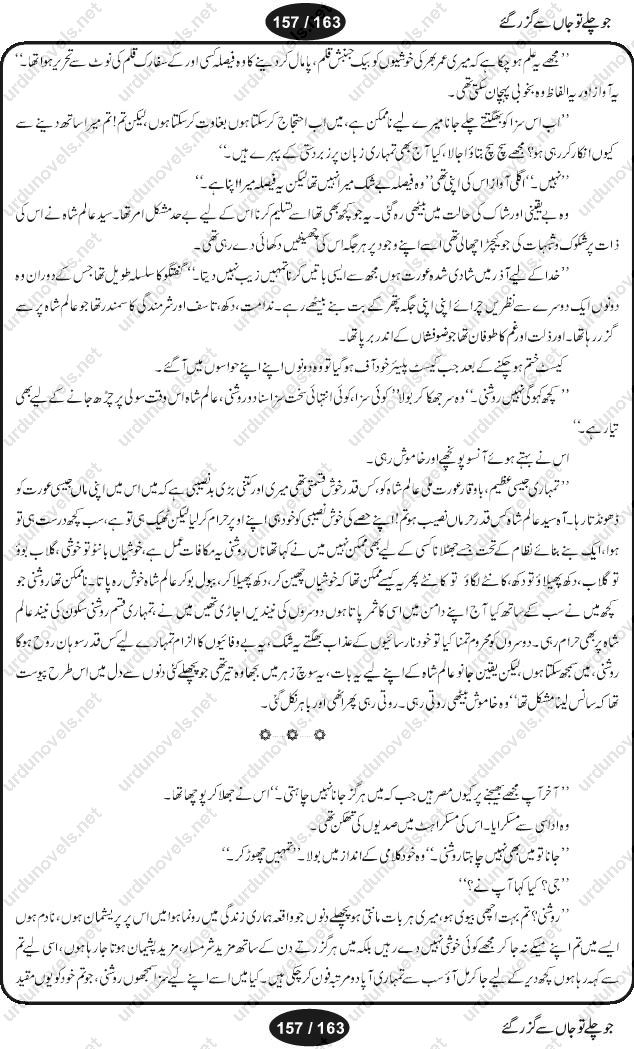 157 / 163
جو چلے تو جاں سے گزر گئے
’’مجھے یہ علم ہو چکا ہے کہ میری عمر بھر کی خوشیوں کو بیک جنبش قلم، پامال کر دینے کا وہ فیصلہ کسی اور کے سفارک قلم کی نوٹ سے تحریر ہوا تھا۔‘‘
یہ آواز اور یہ الفاظ وہ بخوبی پہچان سکتی تھی۔
’’اب اس سزا کو بھگتتے چلے جانا میرے لیے ناممکن ہے، میں اب احتجاج کر سکتا ہوں بغاوت کر سکتا ہوں، لیکن تم! تم میرا ساتھ دینے سے
کیوں انکار کر رہی ہو؟ مجھے سچ سچ بتاؤ اجالا، کیا آج بھی تمہاری زبان پر زبردستی کے پہرے ہیں۔‘‘
’’نہیں۔‘‘ اگلی آواز اس کی اپنی تھی ’’وہ فیصلہ بے شک میرا نہیں تھا لیکن یہ فیصلہ میرا اپنا ہے۔‘‘
وہ بے یقینی اور شاک کی حالت میں بیٹھی رہ گئی۔ یہ جو کچھ بھی تھا اسے تسلیم کرنا اس کے لیے بے حد مشکل امر تھا۔ سید عالم شاہ نے اس کی
ذات پر شکوک و شبہات کی جو کیچڑ اچھالی تھی اسے اپنے وجود پر ہر جگہ اس کی چھینٹیں دکھائی دے رہی تھی۔
’’خدا کے لیے آذر میں شادی شدہ عورت ہوں مجھ سے ایسی باتیں کرنا تمہیں زیب نہیں دیتا۔‘‘ گفتگو کا سلسلہ طویل تھا جس کے دوران وہ
دونوں ایک دوسرے سے نظریں چرائے اپنی اپنی جگہ پتھر کے بت بنے بیٹھے رہے۔ ندامت، دکھ، تاسف اور شرمندگی کا سمندر تھا جو عالم شاہ پر سے
گزر رہا تھا۔ اور ذلت اور غم کا طوفان تھا جو ضوفشاں کے اندر برپا تھا۔
کیسٹ ختم ہو چکنے کے بعد جب کیسٹ پلیئر خود آف ہو گیا تو وہ دونوں اپنے اپنے حواسوں میں آ گئے۔
’’کچھ کہو گی نہیں روشنی۔‘‘ وہ سر جھکا کر بولا ’’کوئی سزا، کوئی انتہائی سخت سزا سنا دو روشنی، عالم شاہ اس وقت سولی پر چڑھ جانے کے لیے بھی
تیار ہے۔‘‘
اس نے بہتے ہوئے آنسو پونچھے اور خاموش رہی۔
’’تمہاری جیسی عظیم، باوقار عورت ملی عالم شاہ کو، کس قدر خوش قسمتی تھی میری اور کتنی بڑی بد نصیبی ہے کہ میں اس میں اپنی ماں جیسی عورت کو
ڈھونڈتا رہا۔ آہ سید عالم شاہ کس قدر حرماں نصیب ہو تم! اپنے حصے کی خوش نصیبی کو خود ہی اپنے اوپر حرام کر لیا لیکن ٹھیک ہی تو ہے، سب کچھ درست ہی تو
ہوا، ایک بنے بنائے نظام کے تحت جسے جھٹلانا کسی کے لیے بھی ممکن نہیں میں نے کہا تھا ناں روشنی یہ مکافات عمل ہے، خوشیاں بانٹو تو خوشی، گلاب بوؤ
تو گلاب، دکھ پھیلاؤ تو دکھ، کانٹے لگاؤ تو کانٹے پھر یہ کیسے ممکن تھا کہ خوشیاں چھین کر، دکھ پھیلا کر، ببول بو کر عالم شاہ خوش رہ پاتا۔ ناممکن تھا روشنی جو
کچھ میں نے سب کے ساتھ کیا آج اپنے دامن میں اسی کا ثمر پاتا ہوں دوسروں کی نیندیں اجاڑی تھیں میں نے، تمہاری قسم روشنی سکون کی نیند عالم
شاہ پر بھی حرام رہی۔ دوسروں کو محروم تمنا کیا تو خود نارسائیوں کے عذاب بھگتے یہ شک، یہ بے وفائیوں کا الزام تمہارے لیے کس قدر سوہان روح ہوگا
روشنی، میں سمجھ سکتا ہوں، لیکن یقین جانو عالم شاہ کے اپنے لیے یہ بات، یہ سوچ زہر میں بجھا وہ تیر تھی جو پچھلے کئی دنوں سے دل میں اس طرح پیوست
تھا کہ سانس لینا مشکل تھا‘‘ وہ خاموش بیٹھی روتی رہی۔ روتی رہی پھر اٹھی اور باہر نکل گئی۔
’’آخر آپ مجھے بھیجنے پر کیوں مصر ہیں جب کہ میں ہرگز جانا نہیں چاہتی۔‘‘ اس نے جھلا کر پوچھا تھا۔
وہ اداسی سے مسکرایا۔ اس کی مسکراہٹ میں صدیوں کی تھکن تھی۔
’’جانا تو میں بھی نہیں چاہتا روشنی۔‘‘ وہ خود کلامی کے انداز میں بولا۔ ’’تمہیں چھوڑ کر۔‘‘
’’جی؟ کیا کہا آپ نے؟‘‘
’’روشنی؟ تم بہت اچھی بیوی ہو، میری ہر بات مانتی ہو پچھلے دنوں جو واقعہ ہماری زندگی میں رونما ہوا میں اس پر پریشمان ہوں، نادم ہوں
ایسے میں تم اپنے میکے نہ جا کر مجھے کوئی خوشی نہیں دے رہیں بلکہ میں ہر گزرتے دن کے ساتھ مزید شرمسار، مزید پشیمان ہوتا جا رہا ہوں، اسی لیے تم
سے کہہ رہا ہوں کچھ دیر کے لیے جا کر مل آؤ سب سے تمہاری آپا دو مرتبہ فون کر چکی ہیں۔ کیا میں اسے اپنے لیے سزا سمجھوں روشنی، جو تم خود کو یوں مقید
157 / 163
جو چلے تو جاں سے گزر گئے
urdunovels.net